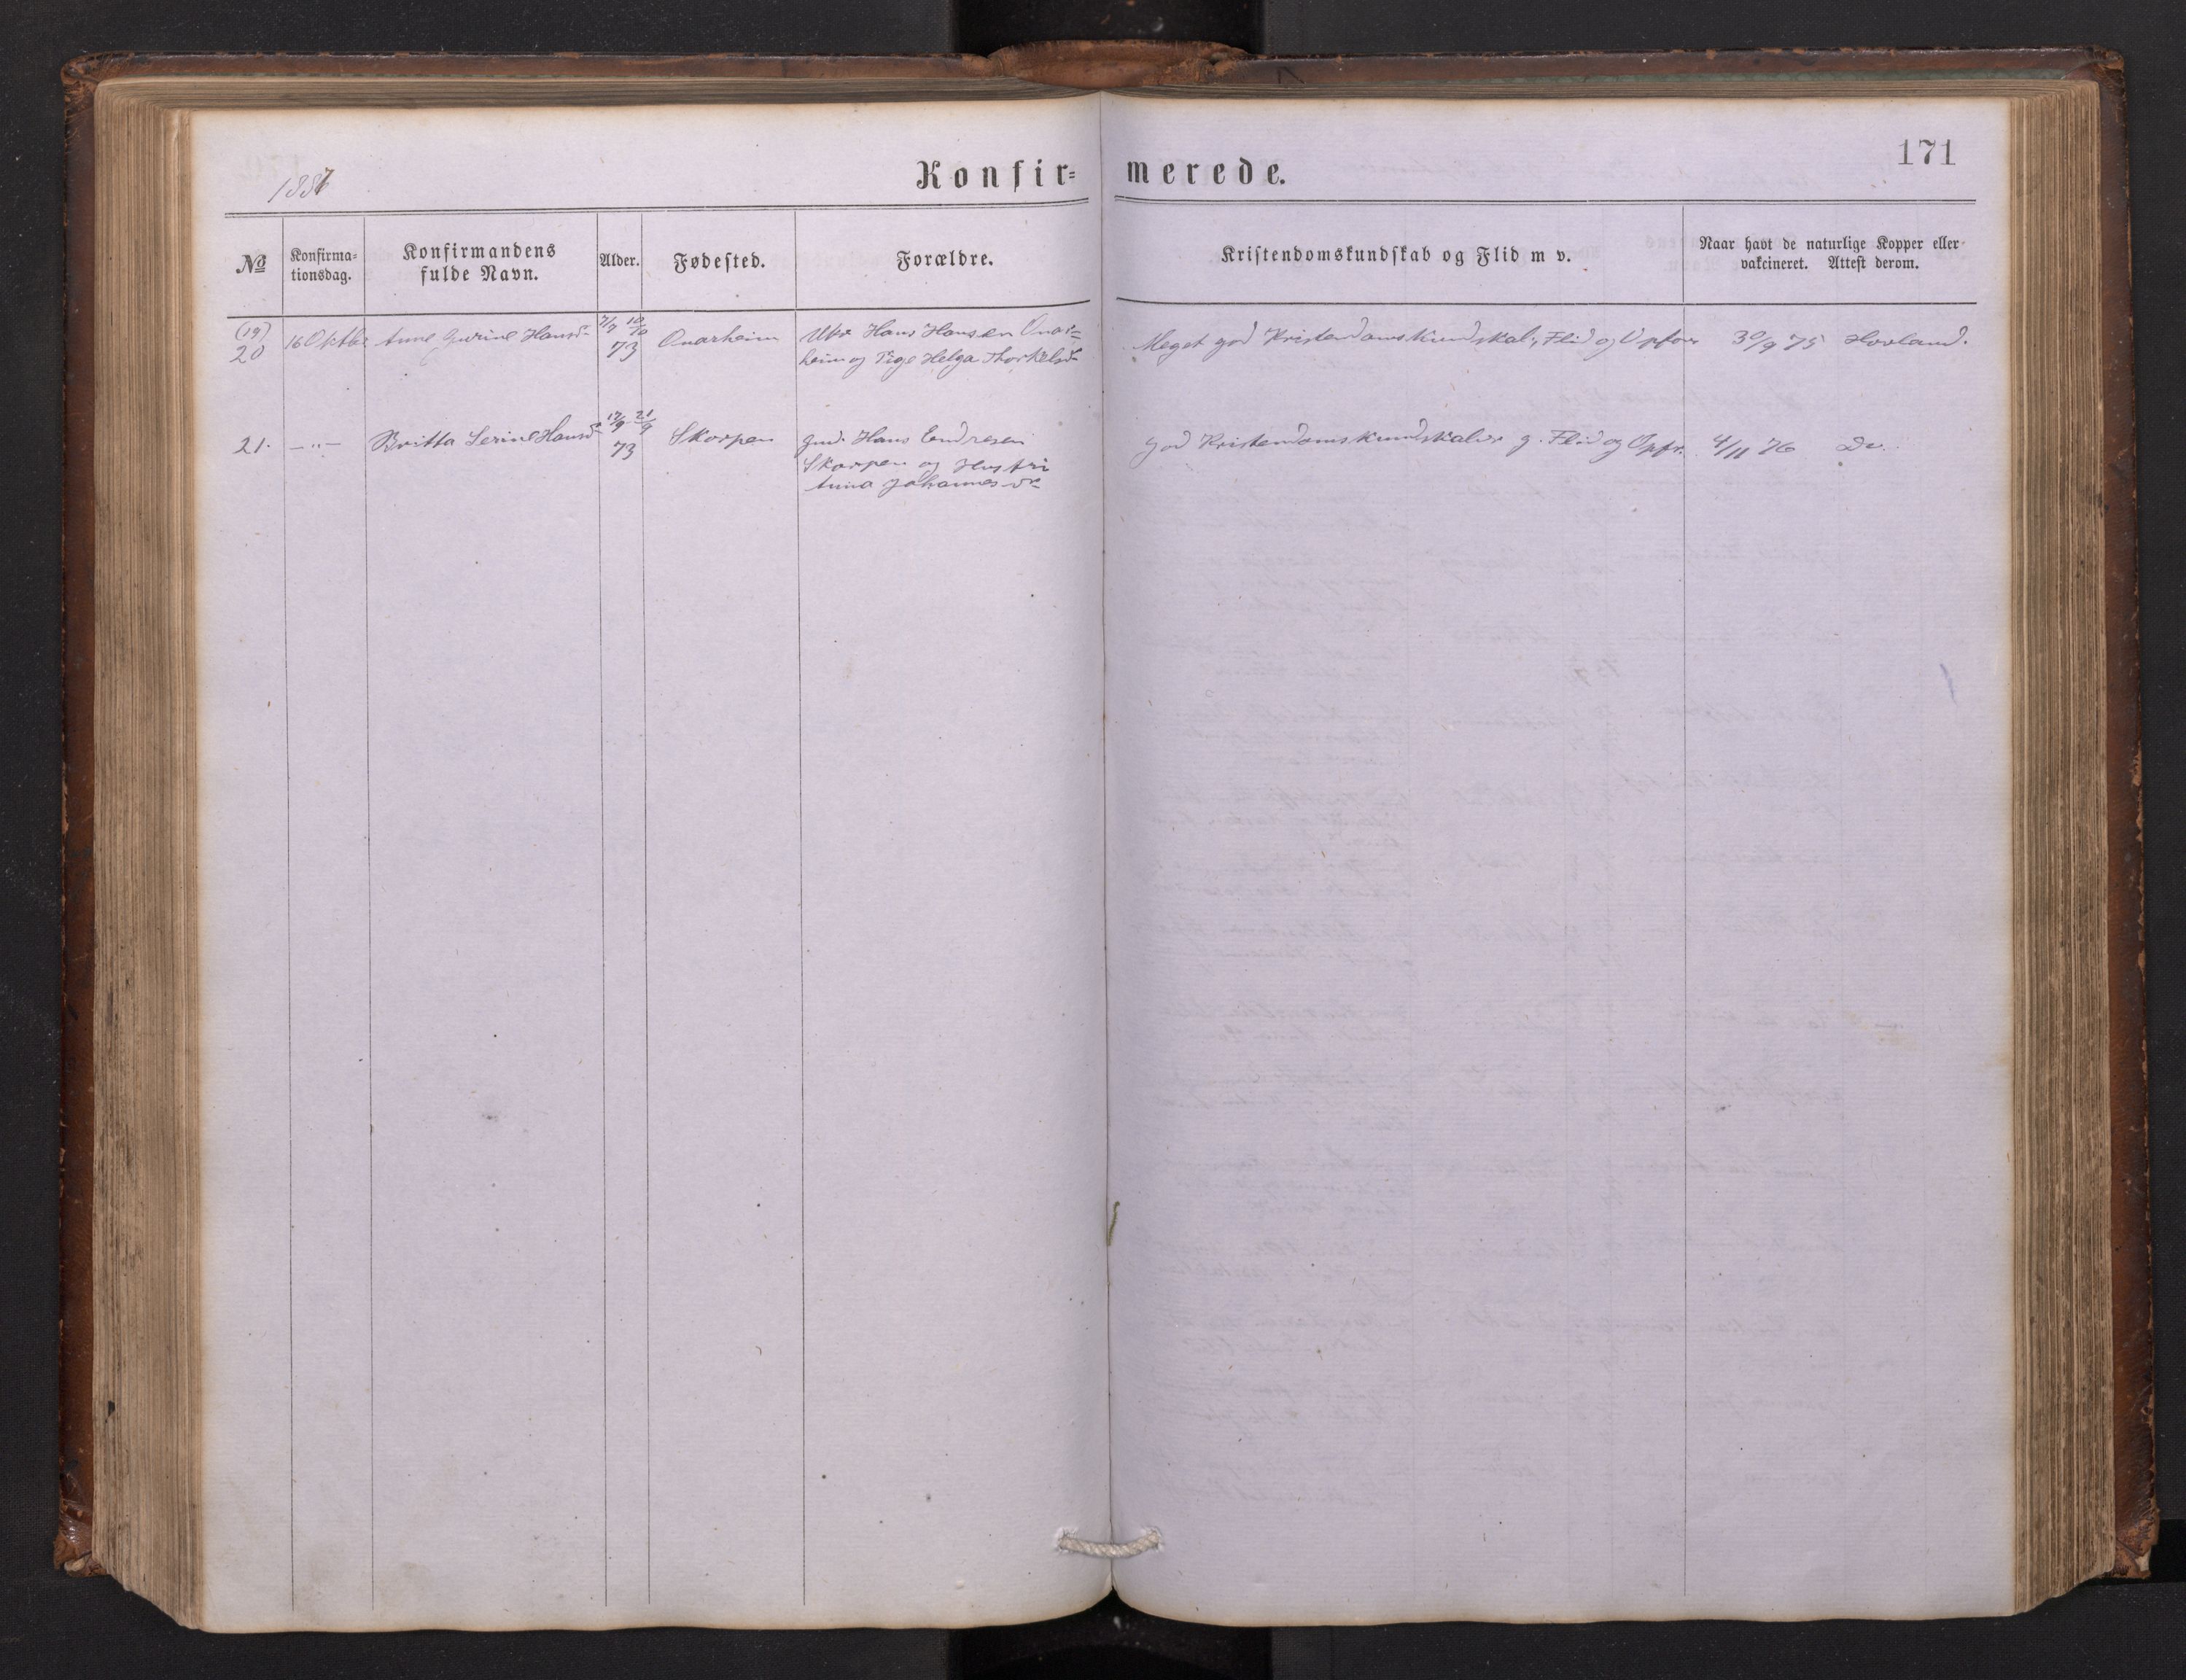 171
1887
Konfir- merede.
No
Konfirma-
tionsdag.
Konfirmandens
fulde Navn.
Alder.
Fødested.
Forældre.
Kristendomskundskab og Flid m v.
Naar havt de naturlige Kopper eller
vakcineret. Attest derom.
(19)
20 16 Oktbr Anne Gurine Hansdr 7/7 10/10 73 Onarheim Ukv Hans Hansen Onar=
heim og Pige Helga Thorkelsdr
Meget god Kristendomskundskab, Flid og Opfør 30/9 75 Hovland.
21. —"— Britta Serine Hansdr 17/9 21/9 73 Skorpen gmd. Hans Endresen
Skorpen og Hustru
Anna Johannesdr
god Kristendomskundskab g. Flid og Opfr. 4/11 76 Do.